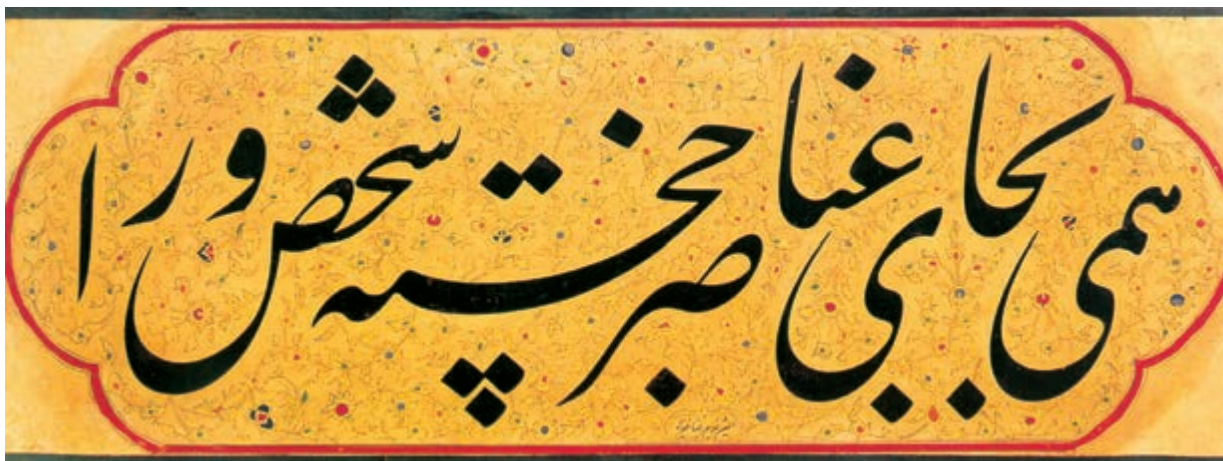 همی بجای عنا صبر خجسته شخص ورا